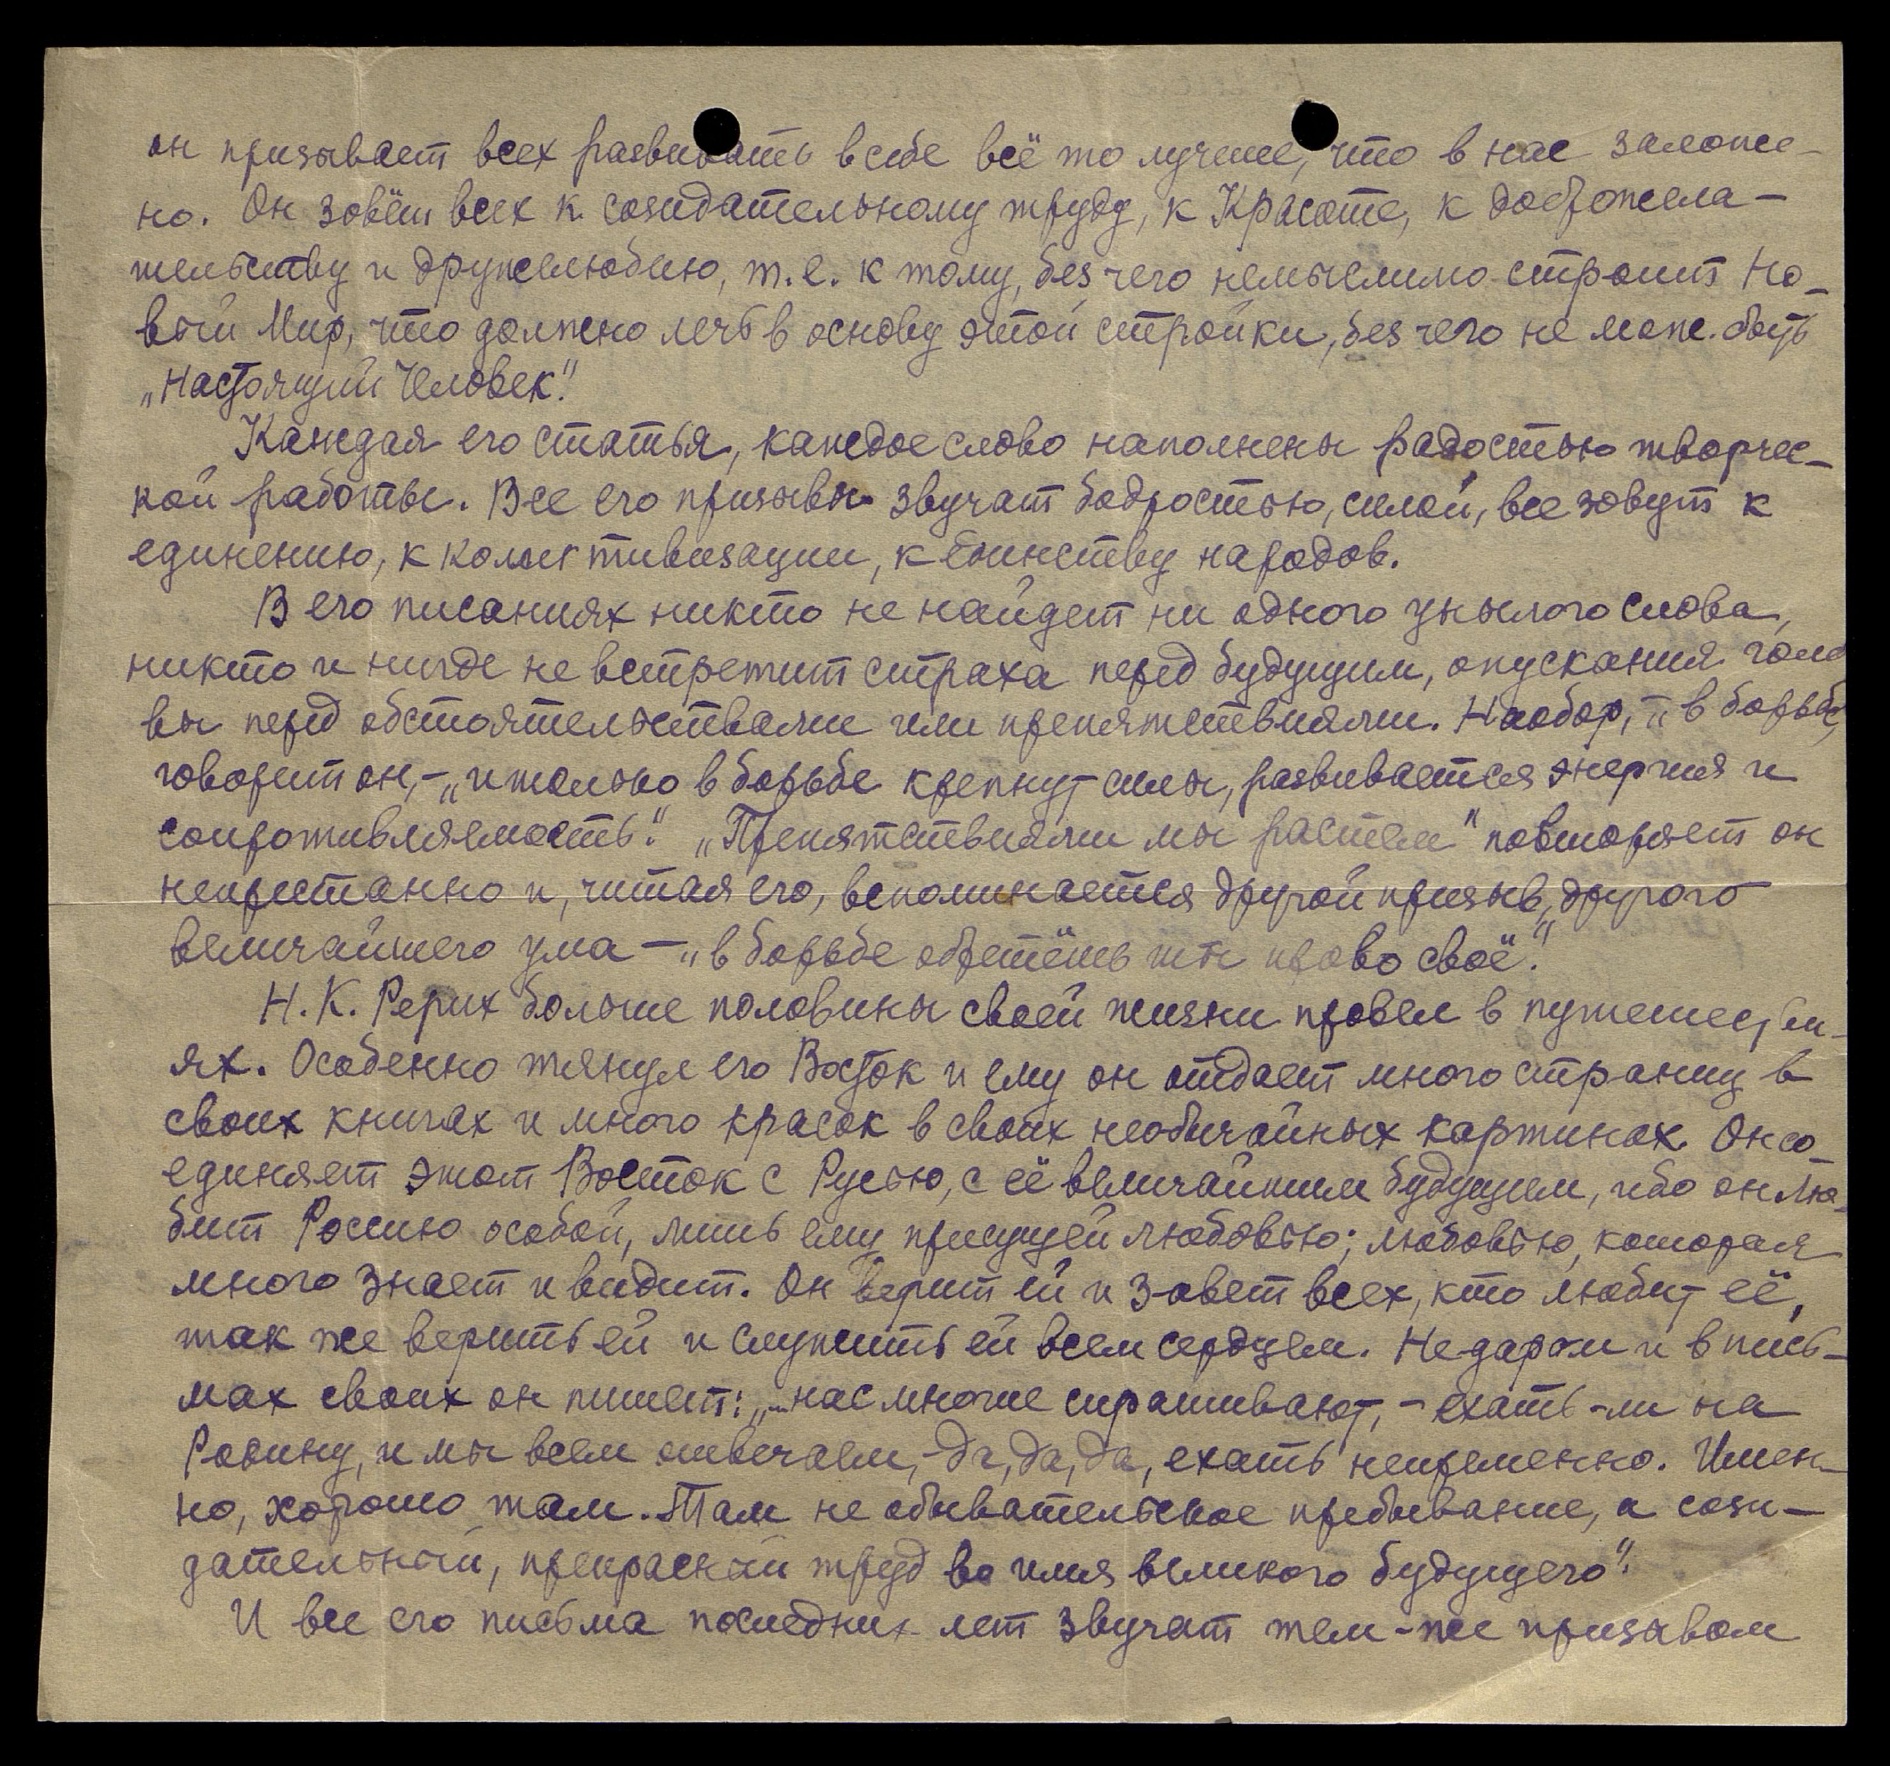 он призывает всех развивать в себе всё то лучшее, что в нас заложе-
но. Он зовёт всех к созидательному труду, к Красоте, к доброжела-
тельству и дружелюбию, т.е. к тому, без чего немыслимо строит Но-
вый Мир, что должно лечь в основу этой стройки, без чего не мож. быть
„Настоящий Человек".
Каждая его статья, каждое слово наполнены радостью творчес-
кой работы. Все его призывы звучат бодростью, силой, все зовут к
единению, к коллективизации, к единству народов.
В его писаниях никто не найдет ни одного унылого слова,
никто и нигде не встретит страха перед будущим, опускания голо
вы перед обстоятельствами или препятствиями. Наобор, – „в борьбе,
говорит он, – „и только в борьбе крепнут силы, развивается энергия и
сопротивляемость". „Препятствиями мы растем" повторяет он
непрестанно и, читая его, вспоминается другой призыв, другого
величайшего ума – „в борьбе обретёшь ты право своё".
Н.К. Рерих больше половины своей жизни провел в путешестви-
ях. Особенно тянул его Восток и ему он отдает много страниц в
своих книгах и много красок в своих необычайных картинах. Он со-
единяет этот Восток с Русью, с её величайшим будущим, ибо он лю-
бит Россию особой, лишь ему присущей любовью; любовью, которая
много знает и видит. Он верит ей и зовет всех, кто любит её,
так же верить ей и служить ей всем сердцем. Недаром и в пись-
мах своих он пишет: „...нас многие спрашивают, – ехать-ли на
Родину, и мы всем отвечаем, – да, да, да, ехать непременно. Имен-
но, хорошо там. Там не обывательское пребывание, а сози-
дательный, прекрасный труд во имя великого будущего".
И все его письма последних лет звучат тем-же призывом